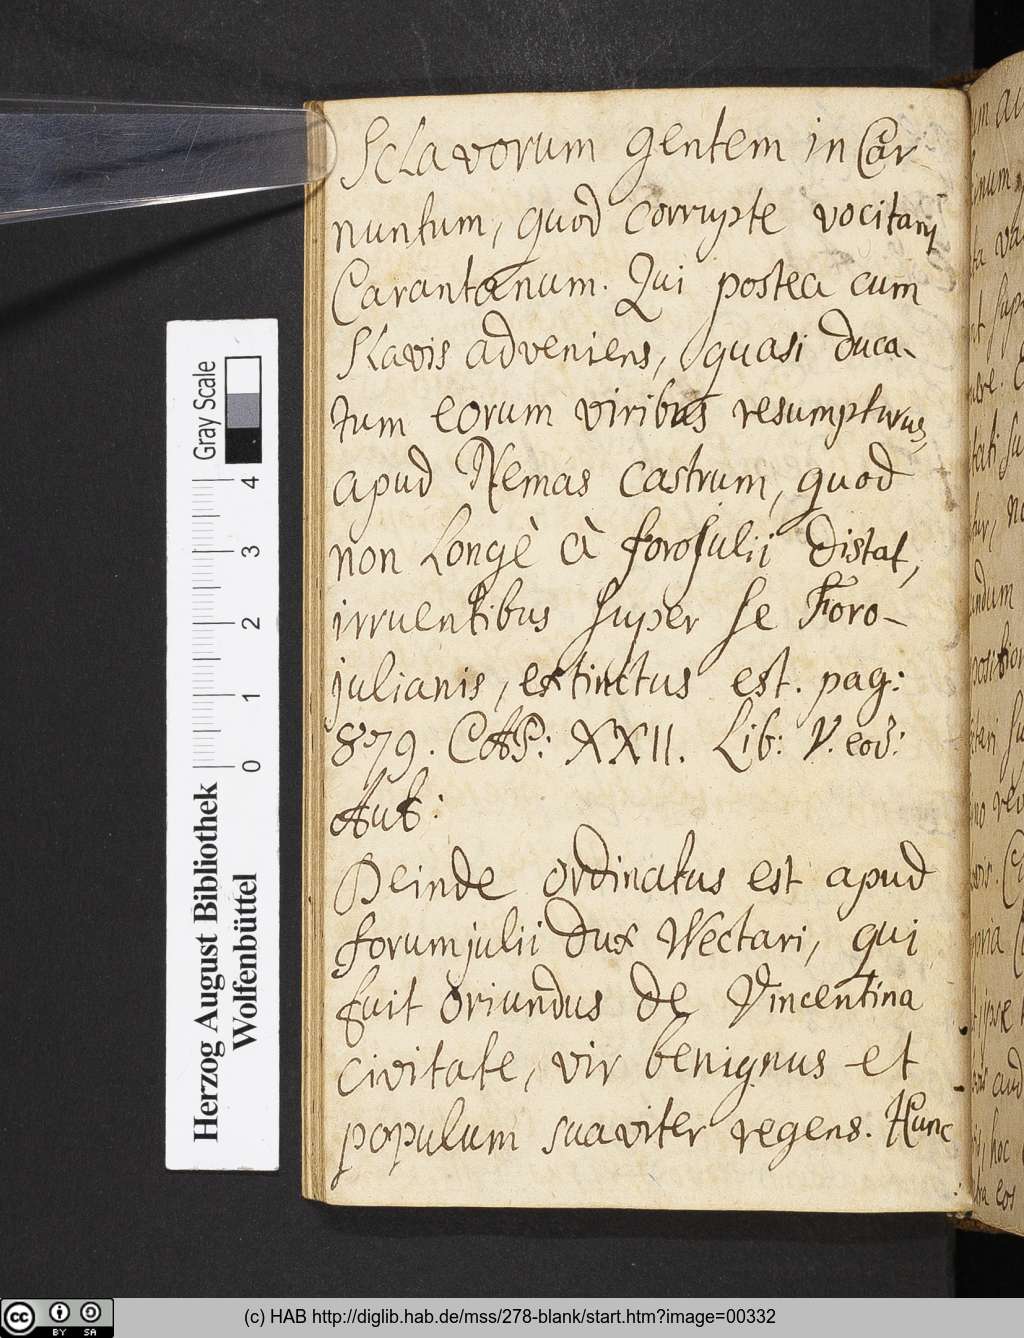 Sclavorum gentem in Car-
nuntum, quod corrupte vocitant
Carantanum. Qui postea cum
Slavis adveniens, quasi duca-
tum eorum viribus resumpturus,
apud Nemas castrum, quod
non longè à forojulii distat,
irruentibus super se Foro-
julianis, extinctus est. pag:
879. CAP: XXII. Lib: V. eod:
Aut:
Deinde ordinatus est apud
forumjulii dux Wectari, qui
fuit oriundus de Vincentina
civitate, vir benignus et
populum suaviter regens. Hunc
Gray Scale
0 1 2 3 4
Herzog August Bibliothek
Wolfenbüttel
cc BY SA
(c) HAB http://diglib.hab.de/mss/278-blank/start.htm?image=00332